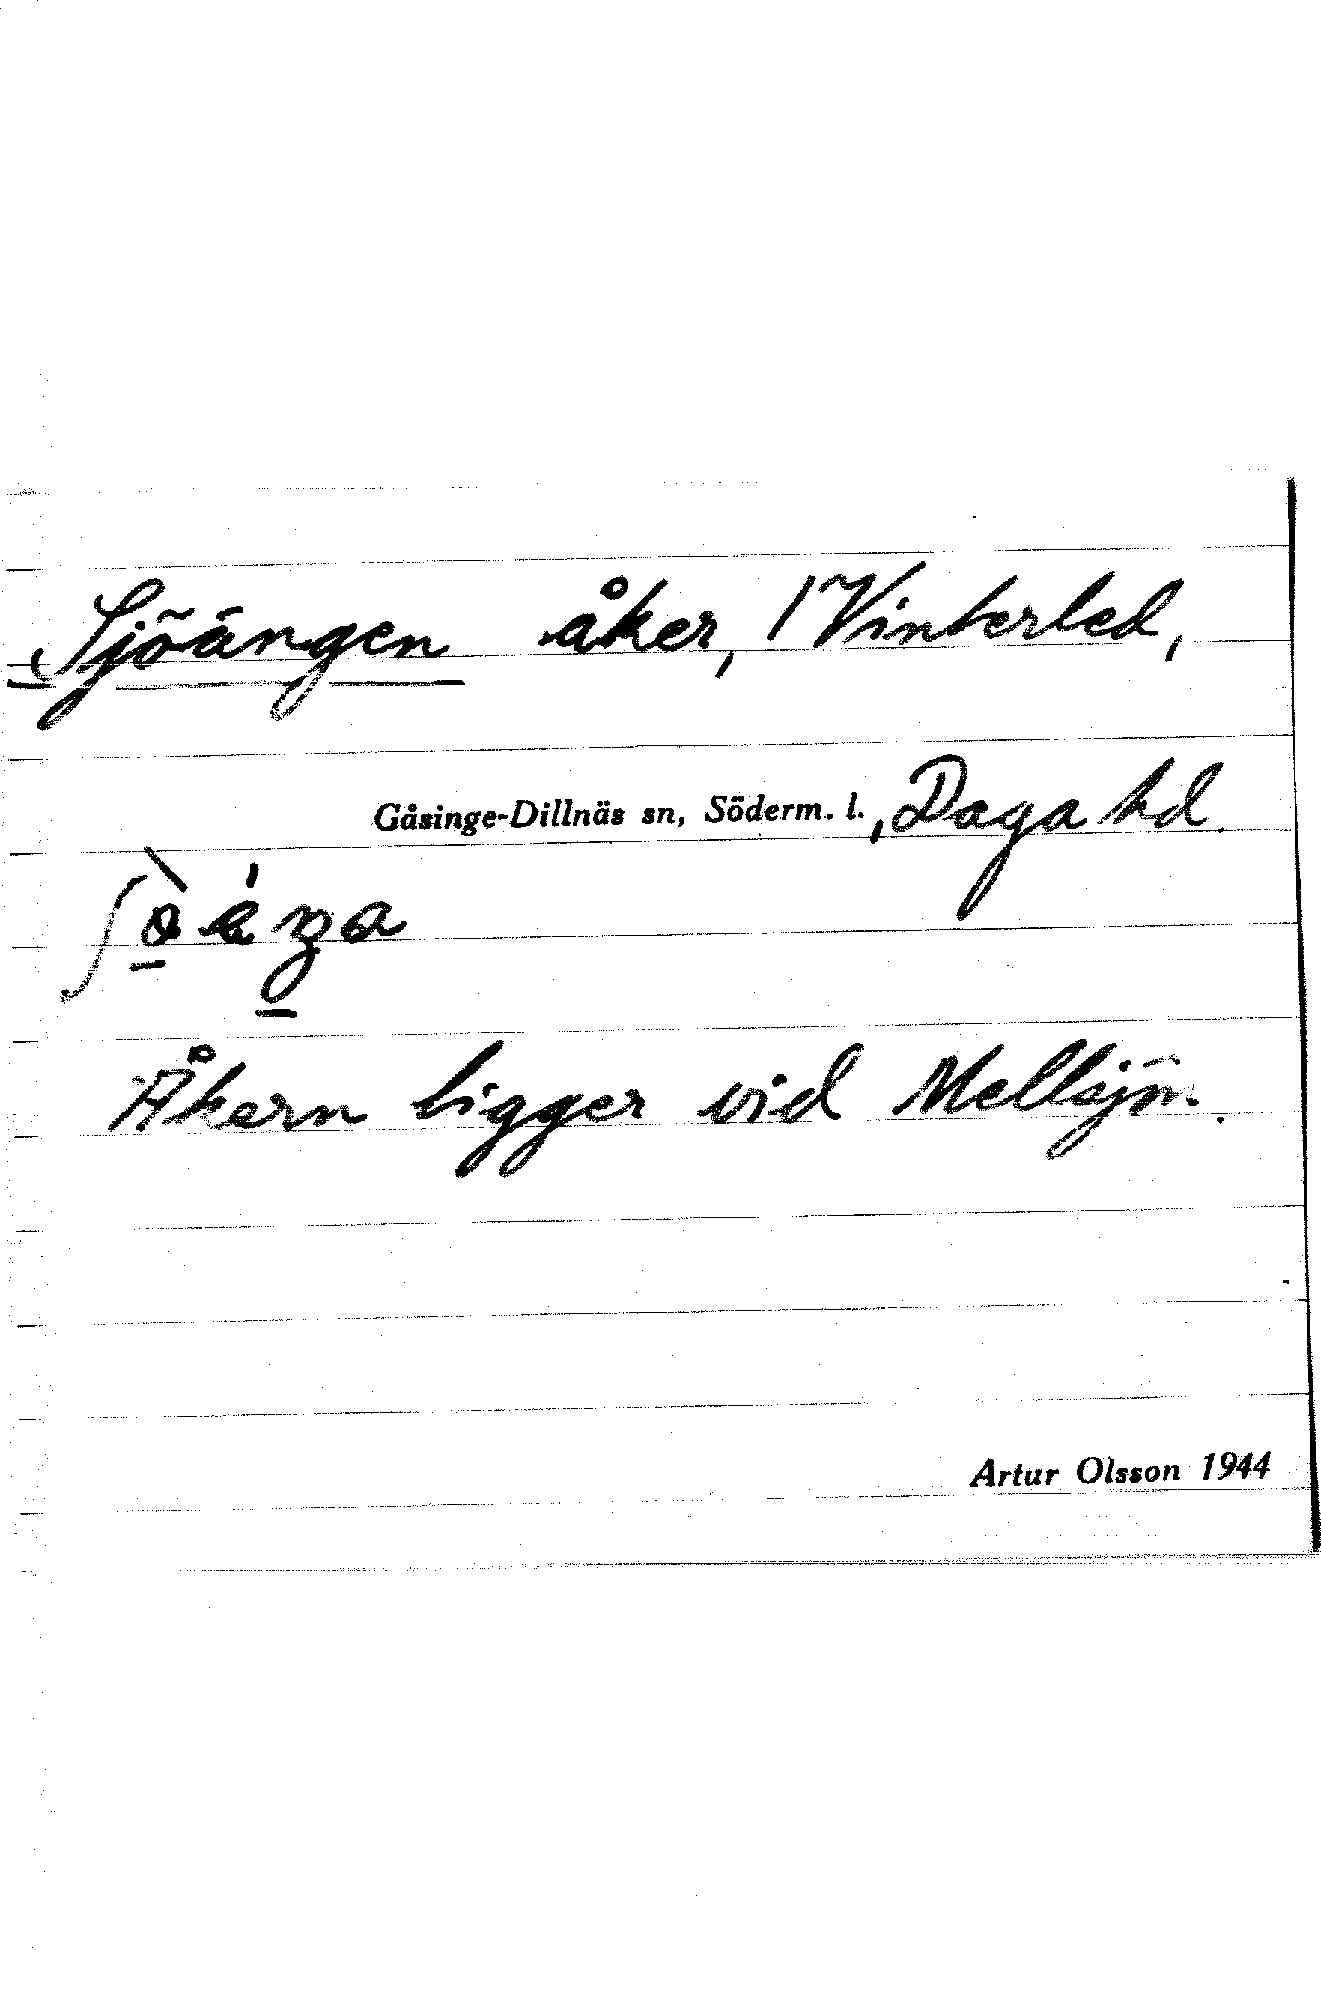 Sjöängen åker, 1 Vinterled,
Gåsinge-Dillnäs sn, Söderm. l., Daga hd.
Åkern ligger vid Mellsjön.
Artur Olsson 1944